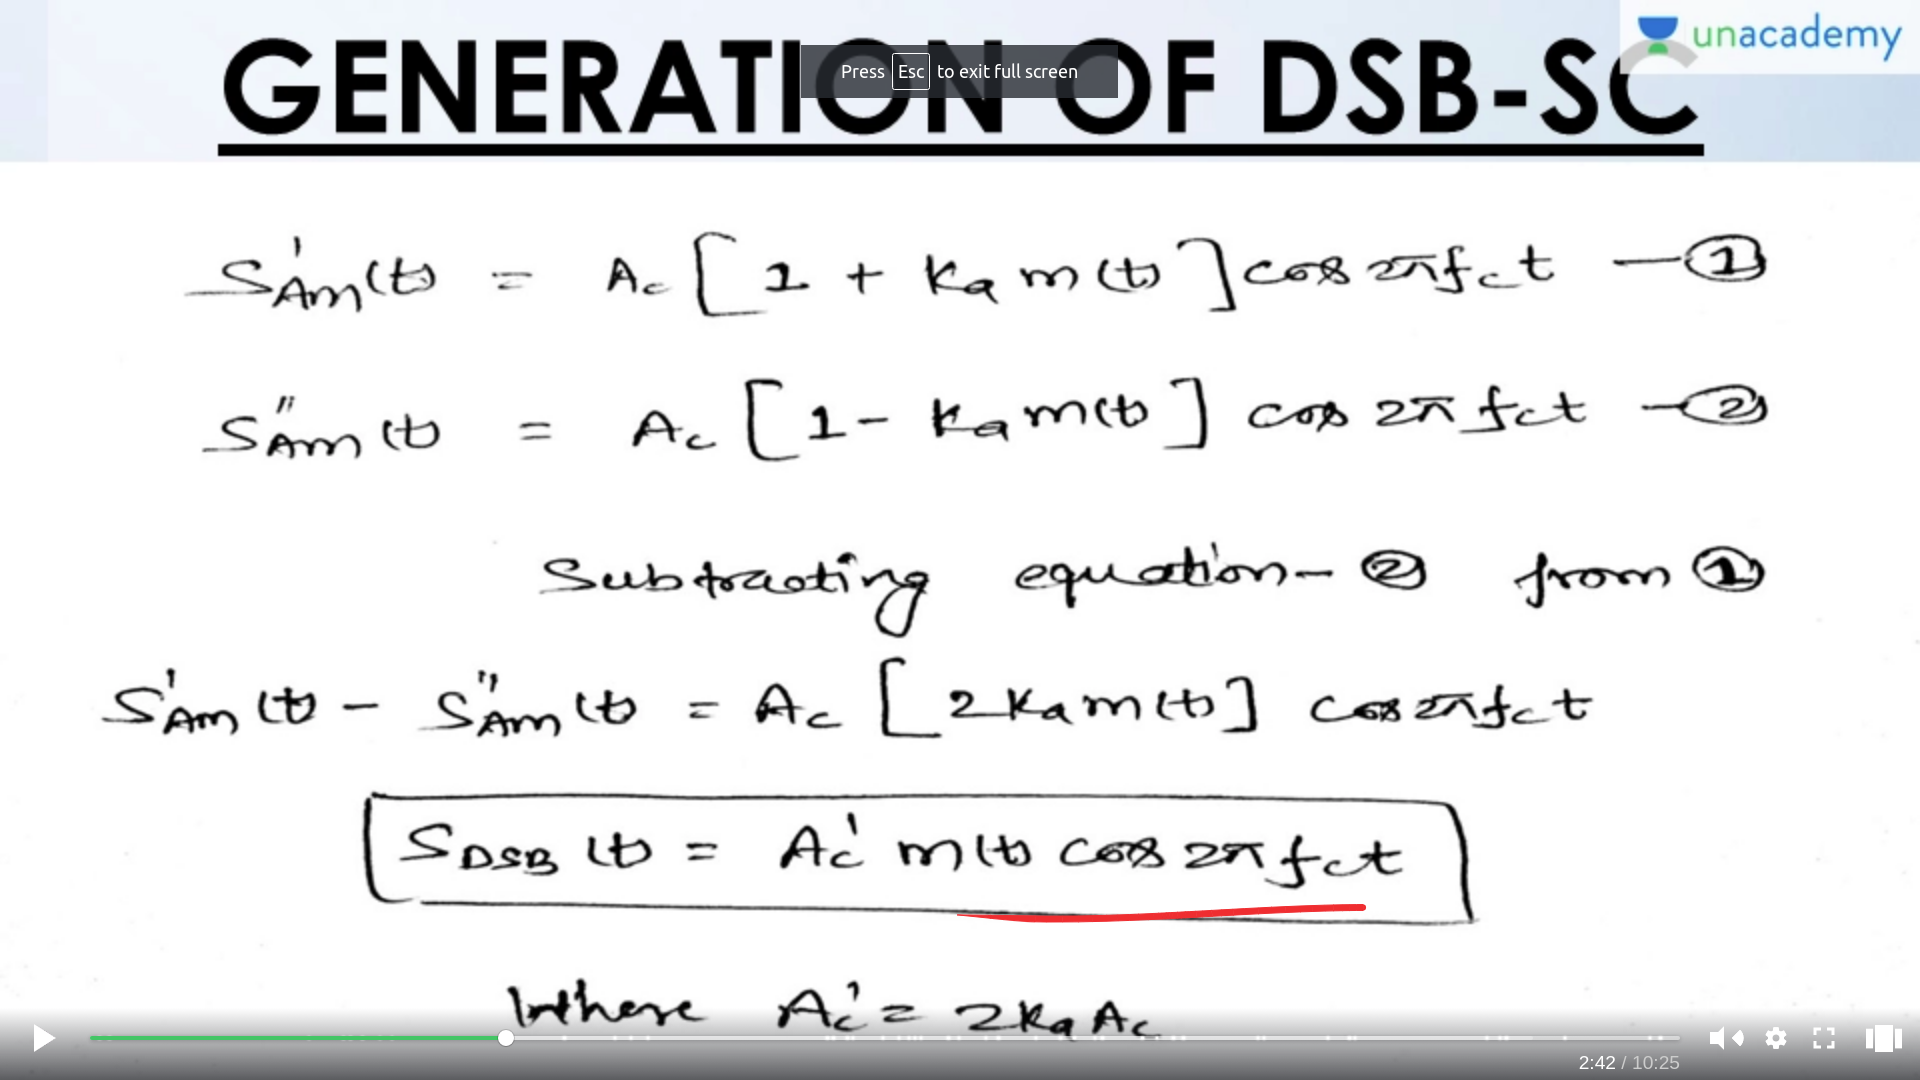 unacademy
GENERATION OF DSB-SC
Press Esc to exit full screen
S'AM(t) = Ac [1 + Ka m(t)] cos 2πfct — ①
S''AM(t) = Ac [1 - Ka m(t)] cos 2πfct — ②
Subtracting equation - ② from ①
S'AM(t) - S''AM(t) = Ac [2Ka m(t)] cos 2πfct
SDSB(t) = Ac' m(t) cos 2πfct
Where Ac' = 2Ka Ac
2:42 / 10:25